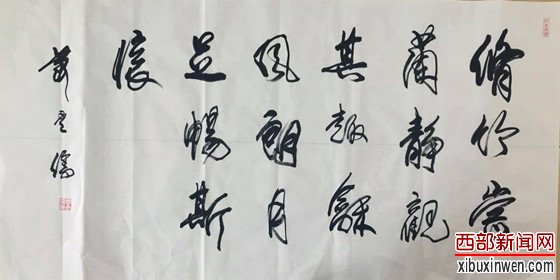 脩竹崇
蘭靜觀
其趣龢
風朗月
足暢斯
懷
西部新闻网
xibuxinwen.com